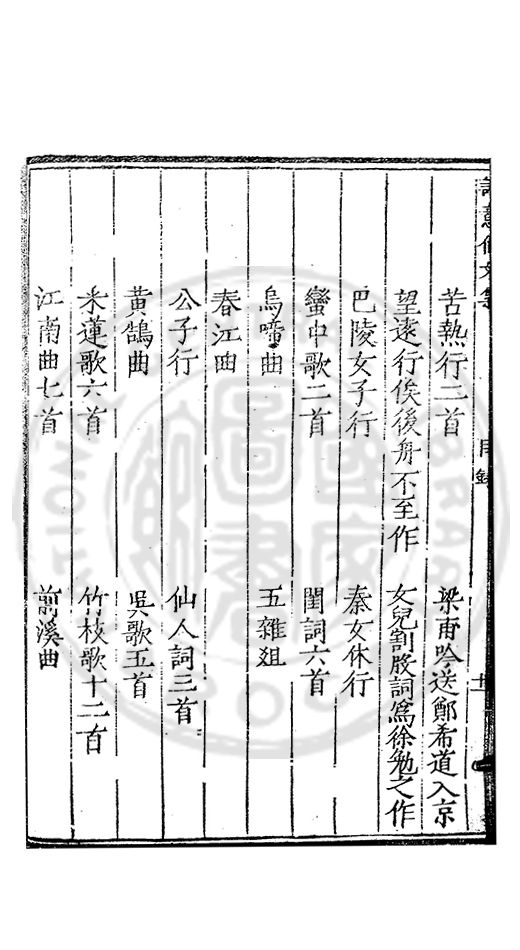 誠意伯文集 目錄
苦熱行二首 梁甫吟送鄭希道入京
望遠行俟後舟不至作 女兒割股詞爲徐勉之作
巴陵女子行 秦女休行
蠻中歌二首 閨詞六首
烏啼曲 五雜俎
春江曲
公子行 仙人詞三首
黃鵠曲 吳歌五首
采蓮歌六首 竹枝歌十二首
江南曲七首 前溪曲